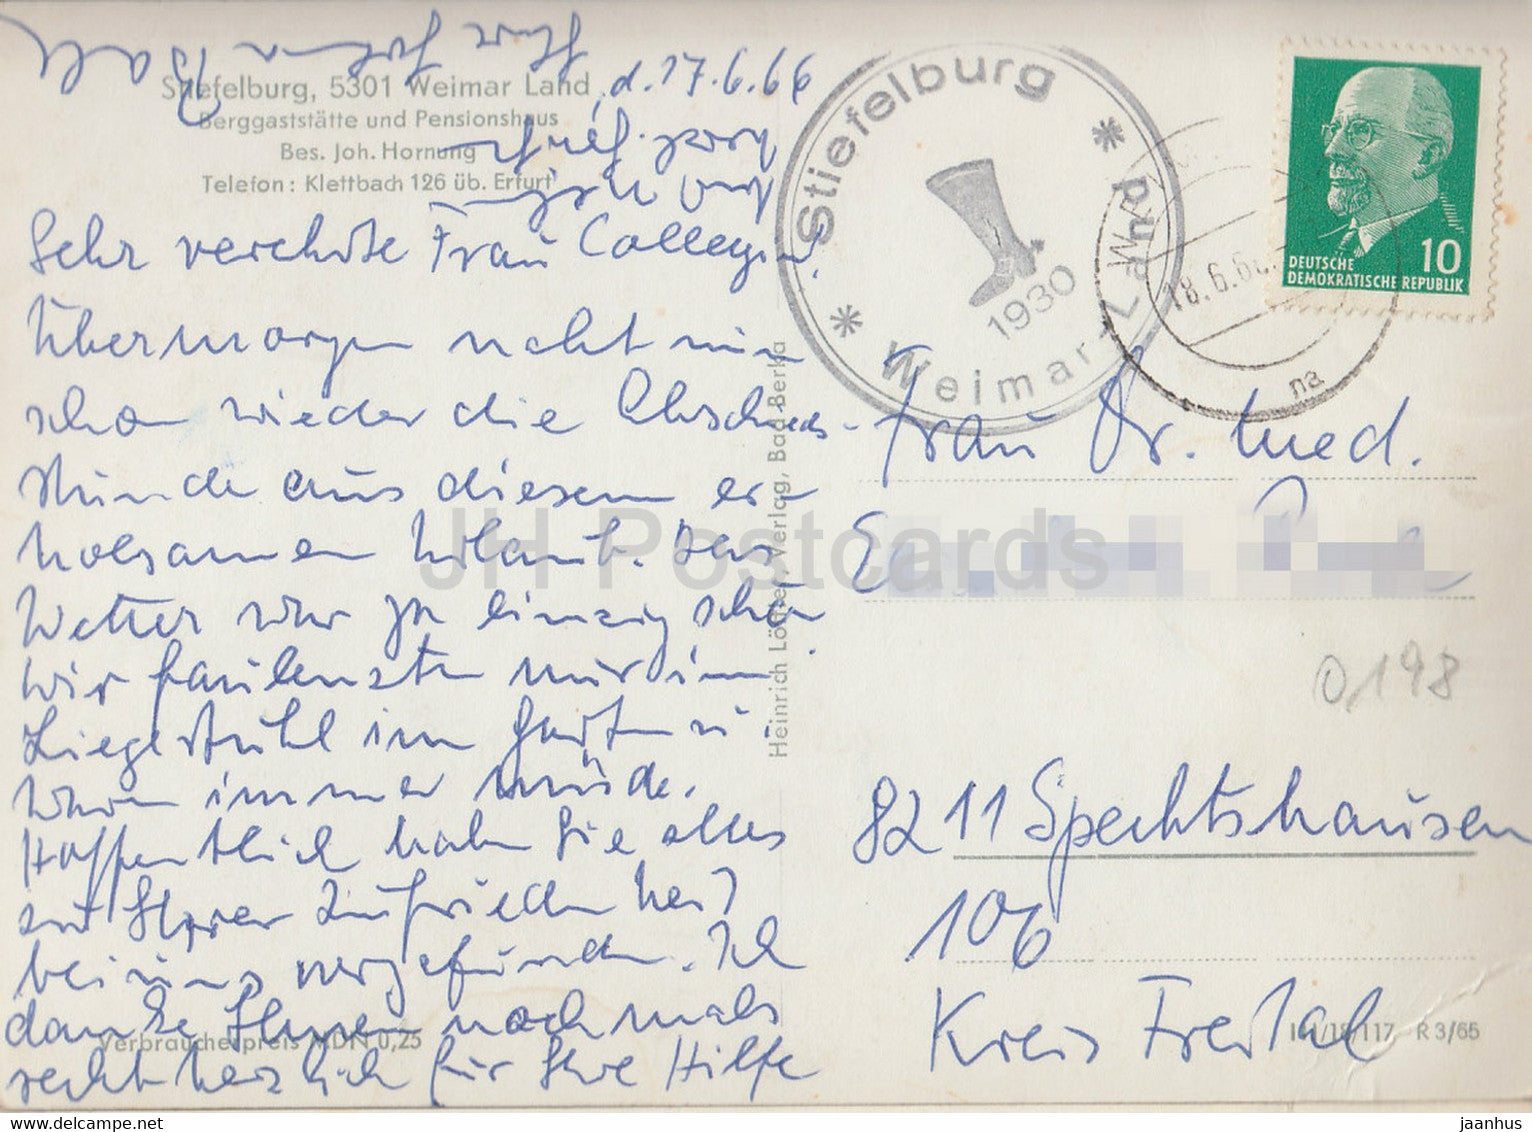 Stiefelburg, 5301 Weimar Land
Berggaststätte und Pensionshaus
Bes. Joh. Hornung
Telefon: Klettbach 126 üb. Erfurt
d. 17.6.66
Sehr verehrte Frau Collegin!
Übermorgen naht nun
schon wieder die Abschieds-
stunde aus diesem er-
holsamen Urlaub. Das
Wetter war ja einzig schön
Wir faulenzten nur im
Liegestuhl im Garten u.
waren immer müde.
Hoffentlich haben Sie alles
zu Ihrer Zufriedenheit
bei uns vorgefunden. Ich
danke Ihnen nochmals
recht herzlich für Ihre Hilfe
Verbraucherpreis MDN 0,25
Heinrich Löffler, Verlag, Bad Berka
Stiefelburg
* Weimar-Land *
1930
18.6.66
na
DEUTSCHE
DEMOKRATISCHE REPUBLIK
10
Frau Dr. med.
0,198
8211 Spechtshausen
106
Kreis Freital
R 3/65
JH Postcards
www.hippostcard.com/store/jh-postcards
jaanhus